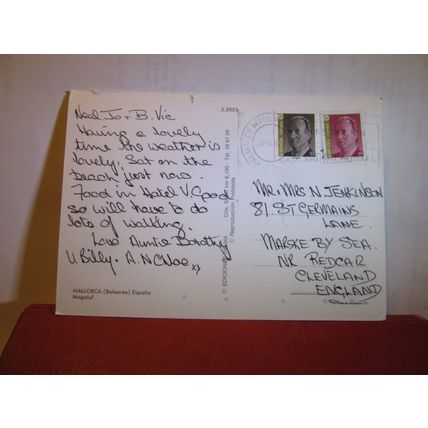 3.305b
Neal Jo + B. Vic
Having a lovely
time the weather is
lovely. Sat on the
beach just now.
Food in Hotel V. Good
so will have to do
lots of walking.
Love Auntie Dorothy
U. Billy.
MALLORCA (Baleares) España
Magaluf
© EDICIONES
© Reproducción Prohibida
Mr. Mrs N JENKINSON
87. ST GERMAINS
LANE.
MARSKE BY SEA.
NR REDCAR
CLEVELAND
ENGLAND